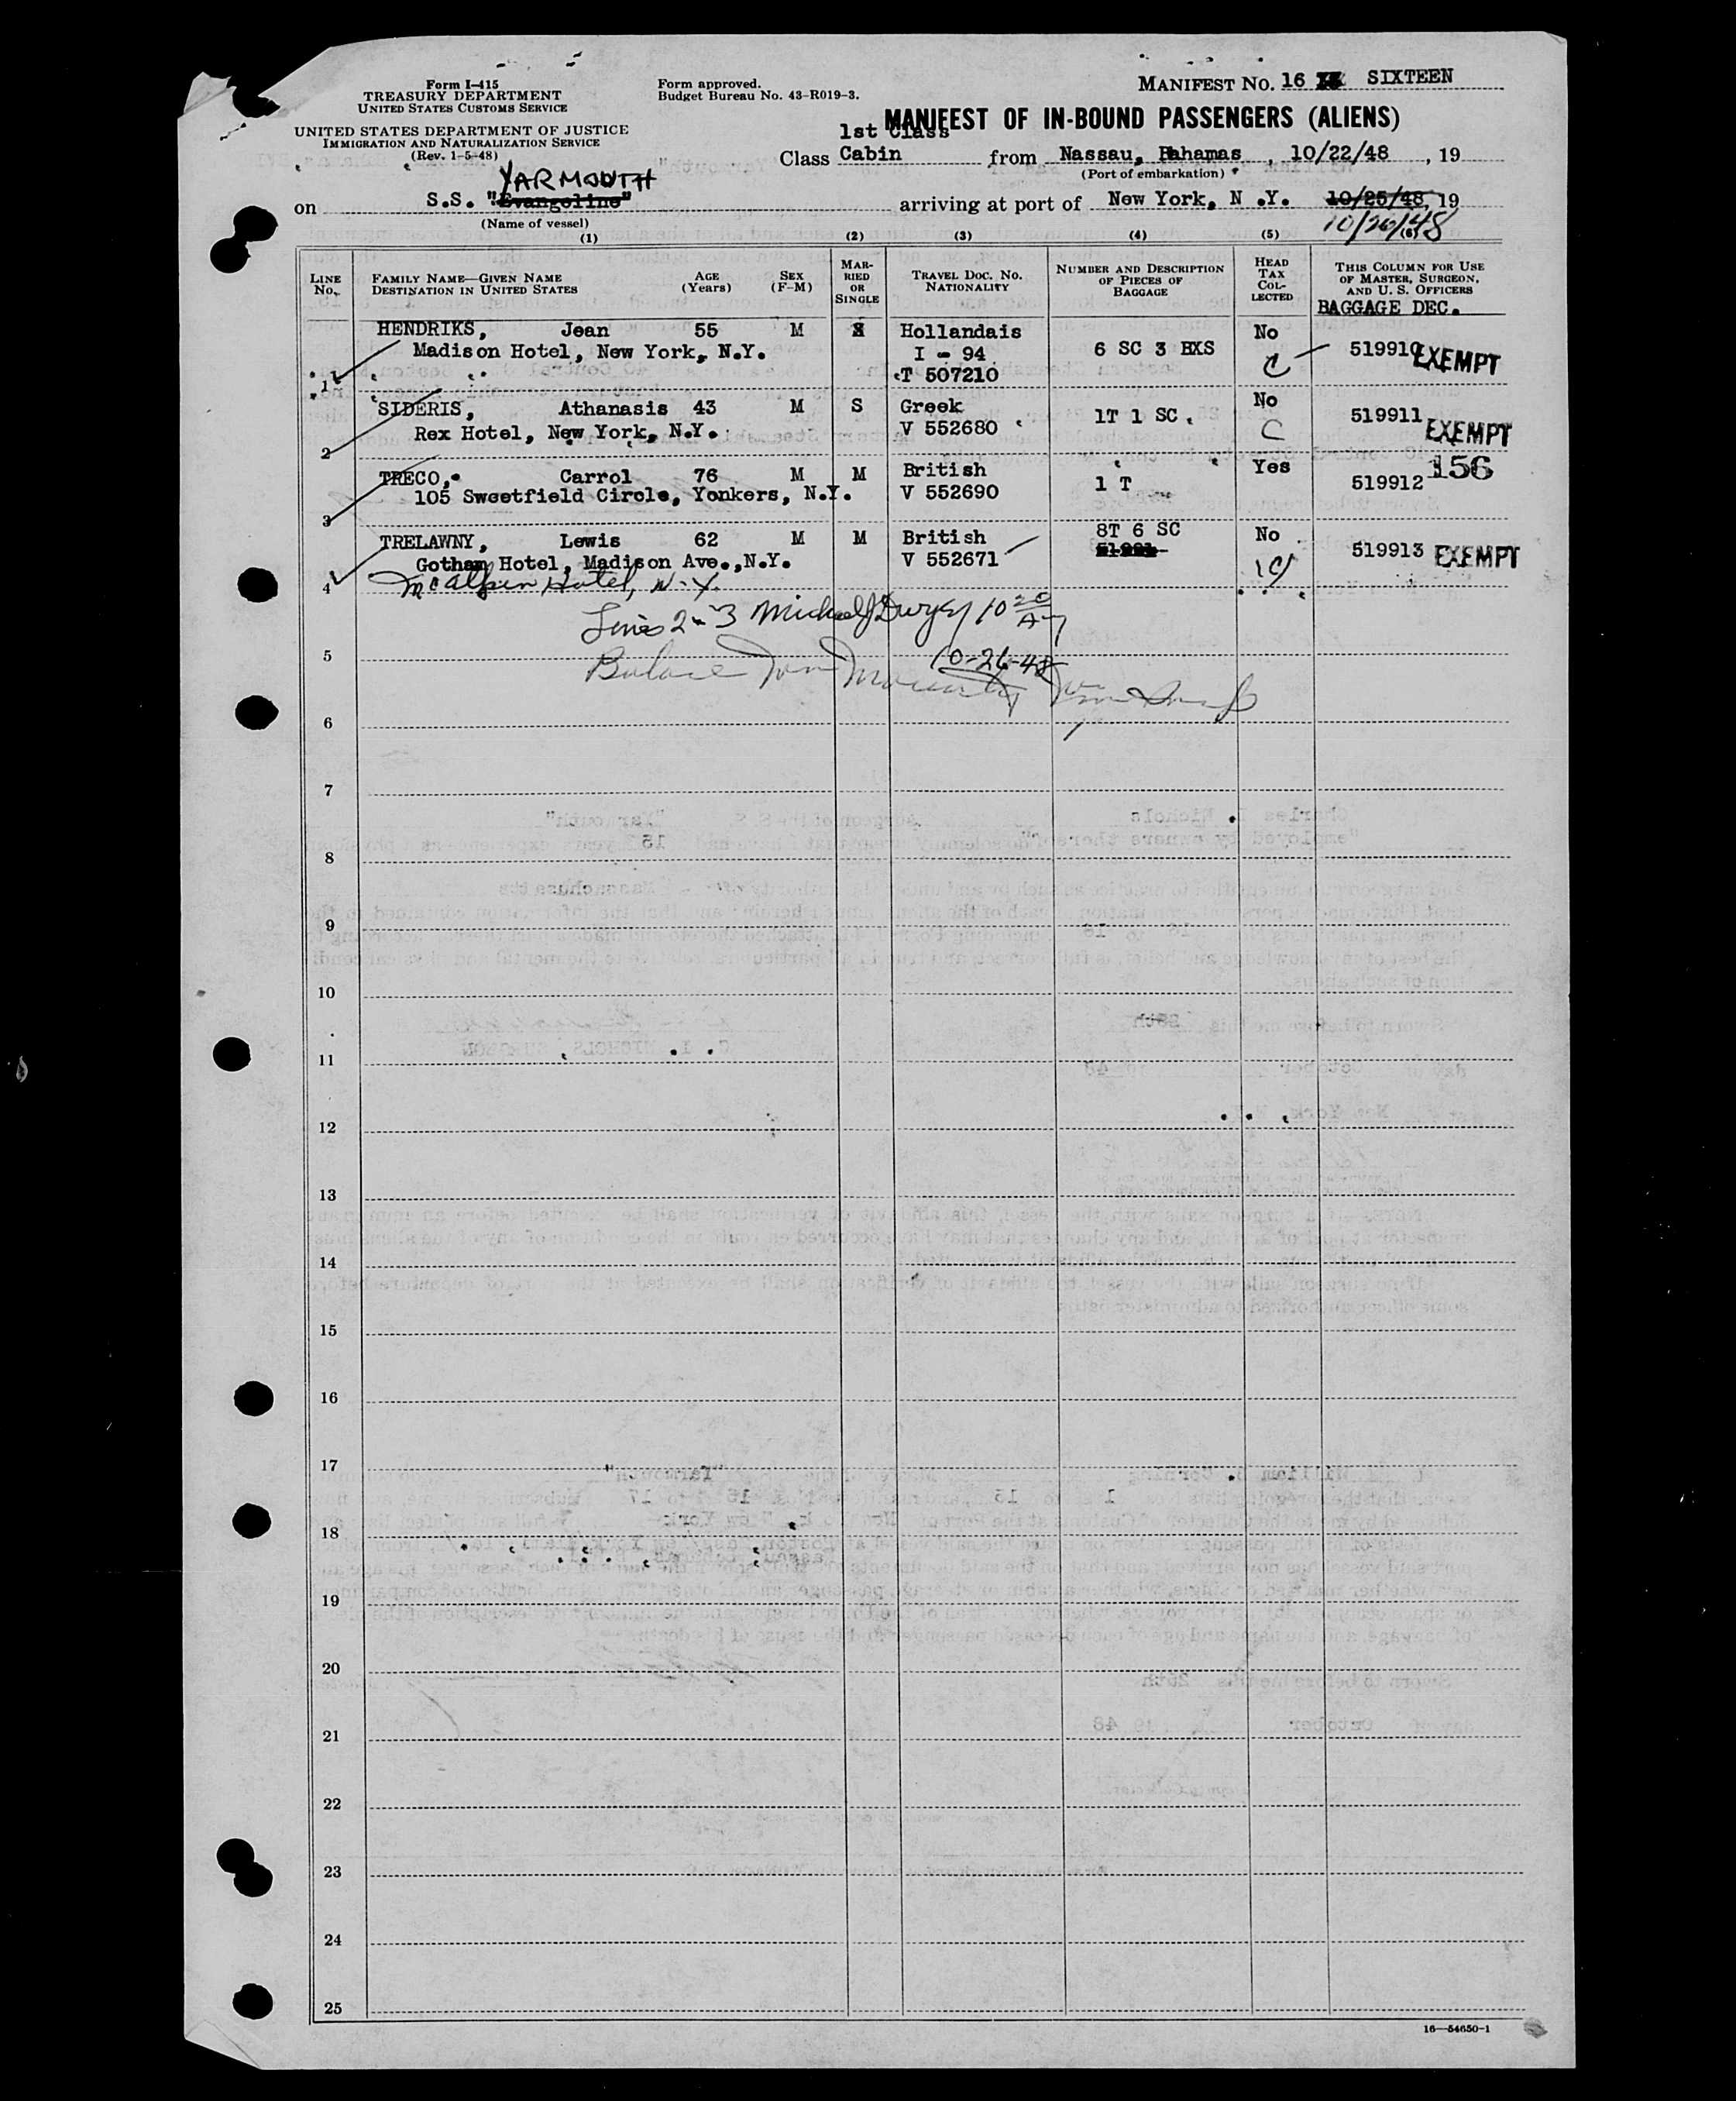 Form I-415
TREASURY DEPARTMENT
UNITED STATES CUSTOMS SERVICE
UNITED STATES DEPARTMENT OF JUSTICE
IMMIGRATION AND NATURALIZATION SERVICE
(Rev. 1-5-48)
Form approved.
Budget Bureau No. 43-R019-3.
MANIFEST NO. 16 SIXTEEN
MANIFEST OF IN-BOUND PASSENGERS (ALIENS)
1st Class
Class Cabin from Nassau, Bahamas, 10/22/48, 19
(Port of embarkation)
YARMOUTH
on S.S. "Evangeline" arriving at port of New York, N.Y. 10/25/48, 19
(Name of vessel)
10/26/48
(1) (2) (3) (4) (5) (6)
LINE No. FAMILY NAME—GIVEN NAME DESTINATION IN UNITED STATES AGE (Years) SEX (F-M) MARRIED OR SINGLE TRAVEL DOC. NO. NATIONALITY NUMBER AND DESCRIPTION OF PIECES OF BAGGAGE HEAD TAX COLLECTED THIS COLUMN FOR USE OF MASTER, SURGEON, AND U. S. OFFICERS
BAGGAGE DEC.
HENDRIKS, Jean 55 M Hollandais No
Madison Hotel, New York, N.Y. I - 94 6 SC 3 BXS C 519910 EXEMPT
1 T 507210
SIDERIS, Athanasis 43 M S Greek 1T 1 SC. No 519911 EXEMPT
Rex Hotel, New York, N.Y. V 552680 C
2
TRECO, Carrol 76 M M British 1 T Yes 519912 156
105 Sweetfield Circle, Yonkers, N.Y. V 552690
3
TRELAWNY, Lewis 62 M M British 8T 6 SC No 519913 EXEMPT
Gotham Hotel, Madison Ave., N.Y. V 552671
4 McAlpin Hotel, N.Y.
Lines 2-3 Michael J Dwyer 10 20 AM
5 10-26-48
6
7
8
9
10
11
12
13
14
15
16
17
18
19
20
21
22
23
24
25
16—54650-1